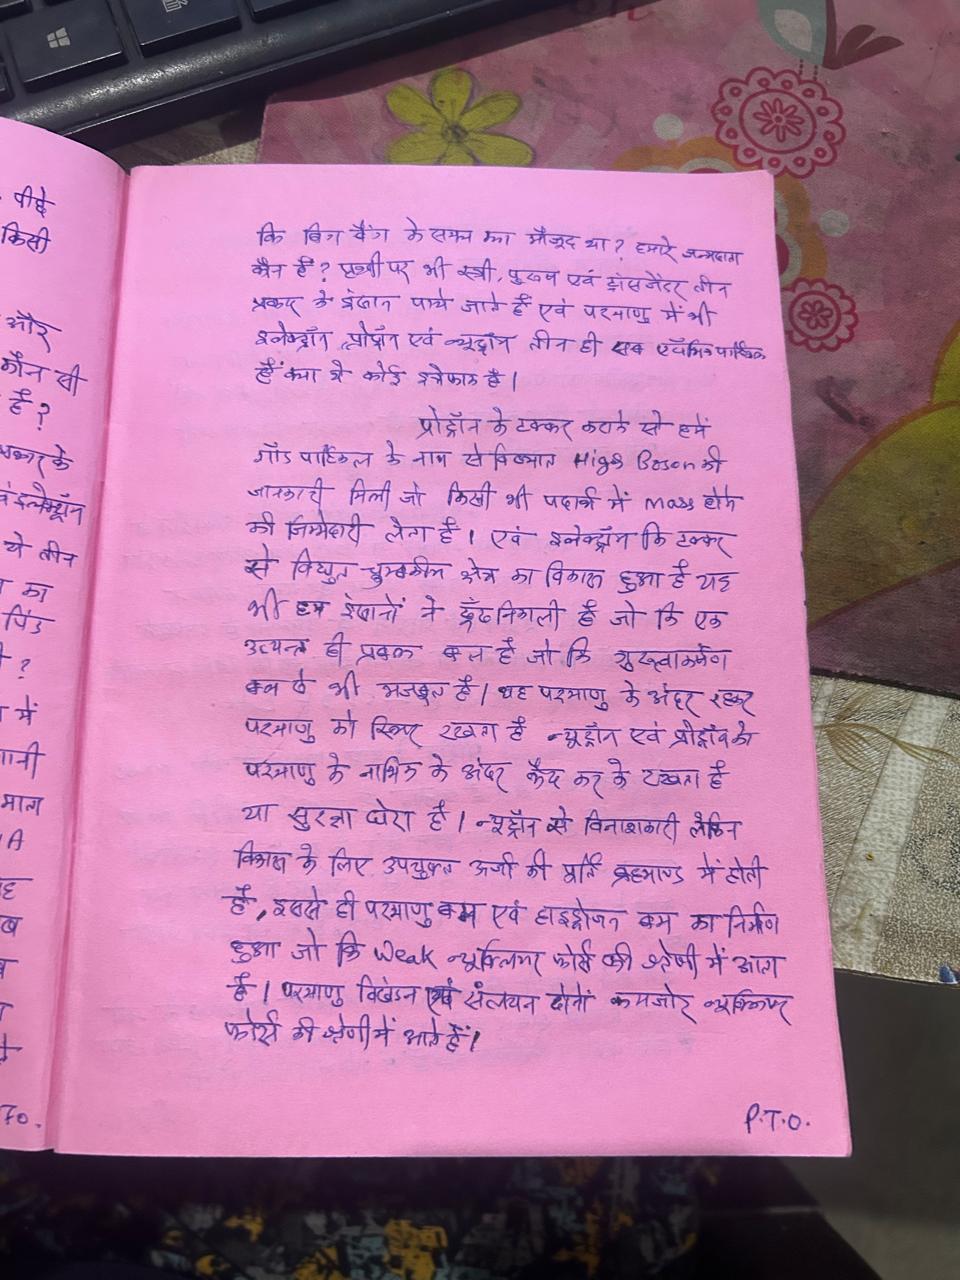 पीछे
किसी
और
कौन सी
है?
प्रकार के
इलेक्ट्रॉन
ये तीन
का
पिंड
?
में
माल
A
कि बिग बैंग के समय का मौजूद था? हमारे जन्मदाता
कौन हैं? पृथ्वी पर भी स्त्री, पुरुष एवं ट्रांसजेंडर तीन
प्रकार के इंसान पाये जाते हैं एवं परमाणु में भी
इलेक्ट्रॉन प्रोट्रॉन एवं न्यूट्रॉन तीन ही सब एटॉमिक पार्टिकल
हैं क्या ये कोई इत्तेफाक है।
प्रोट्रॉन के टक्कर कराने से हमें
गॉड पार्टिकल के नाम से विख्यात Higs Boson की
जानकारी मिली जो किसी भी पदार्थ में mass होने
की जिम्मेदारी लेता है। एवं इलेक्ट्रॉन कि टक्कर
से विद्युत चुम्बकीय क्षेत्र का विकास हुआ है यह
भी हम इंसानों ने ढूँढ निकाली है जो कि एक
अत्यन्त ही प्रबल बल है जो कि गुरुत्वाकर्षण
बल से भी मजबूत है। यह परमाणु के अंदर रहकर
परमाणु को स्थिर रखता है न्यूट्रॉन एवं प्रोट्रॉन को
परमाणु के नाभिक के अंदर कैद कर के रखता है
या सुरक्षा घेरा है। न्यूट्रॉन से विनाशकारी लेकिन
विकास के लिए उपयुक्त ऊर्जा की पूर्ति ब्रह्माण्ड में होती
है, इससे ही परमाणु बम एवं हाइड्रोजन बम का निर्माण
हुआ जो कि Weak न्यूक्लियर फोर्स की श्रेणी में आता
है। परमाणु विखंडन एवं संलयन दोनों कमजोर न्यूक्लियर
फोर्स की श्रेणी में आते हैं।
P.T.O.